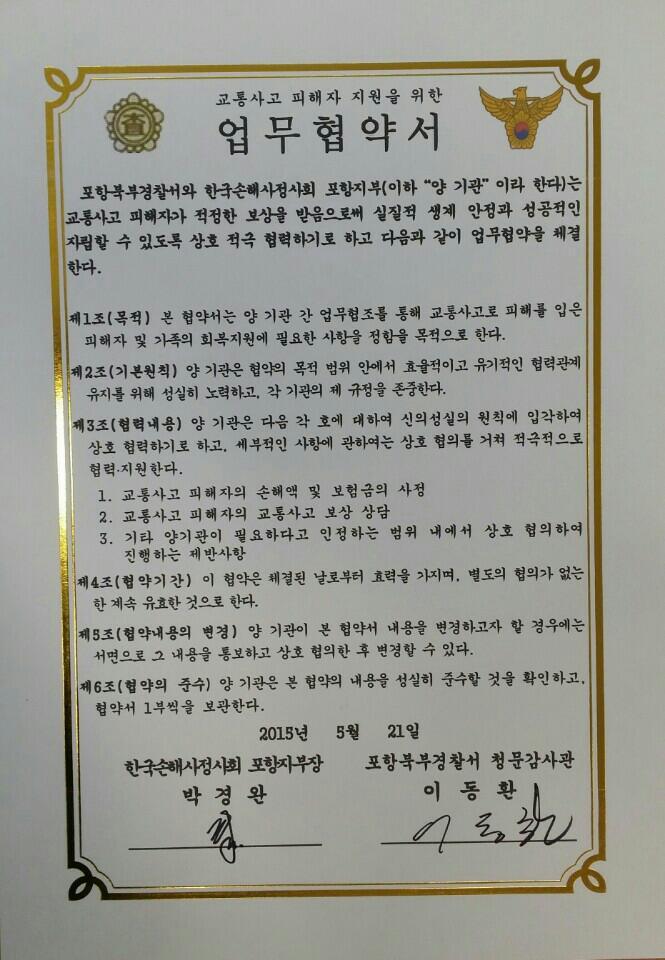 査
교통사고 피해자 지원을 위한
업무협약서
포항북부경찰서와 한국손해사정사회 포항지부(이하 “양 기관” 이라 한다)는
교통사고 피해자가 적정한 보상을 받음으로써 실질적 생계 안정과 성공적인
자립할 수 있도록 상호 적극 협력하기로 하고 다음과 같이 업무협약을 체결
한다.
제1조(목적) 본 협약서는 양 기관 간 업무협조를 통해 교통사고로 피해를 입은
피해자 및 가족의 회복지원에 필요한 사항을 정함을 목적으로 한다.
제2조(기본원칙) 양 기관은 협약의 목적 범위 안에서 효율적이고 유기적인 협력관계
유지를 위해 성실히 노력하고, 각 기관의 제 규정을 존중한다.
제3조(협력내용) 양 기관은 다음 각 호에 대하여 신의성실의 원칙에 입각하여
상호 협력하기로 하고, 세부적인 사항에 관하여는 상호 협의를 거쳐 적극적으로
협력·지원한다.
1. 교통사고 피해자의 손해액 및 보험금의 사정
2. 교통사고 피해자의 교통사고 보상 상담
3. 기타 양기관이 필요하다고 인정하는 범위 내에서 상호 협의하여
진행하는 제반사항
제4조(협약기간) 이 협약은 체결된 날로부터 효력을 가지며, 별도의 협의가 없는
한 계속 유효한 것으로 한다.
제5조(협약내용의 변경) 양 기관이 본 협약서 내용을 변경하고자 할 경우에는
서면으로 그 내용을 통보하고 상호 협의한 후 변경할 수 있다.
제6조(협약의 준수) 양 기관은 본 협약의 내용을 성실히 준수할 것을 확인하고,
협약서 1부씩을 보관한다.
2015년 5월 21일
한국손해사정사회 포항지부장 포항북부경찰서 청문감사관
박경완 이동환
이동환